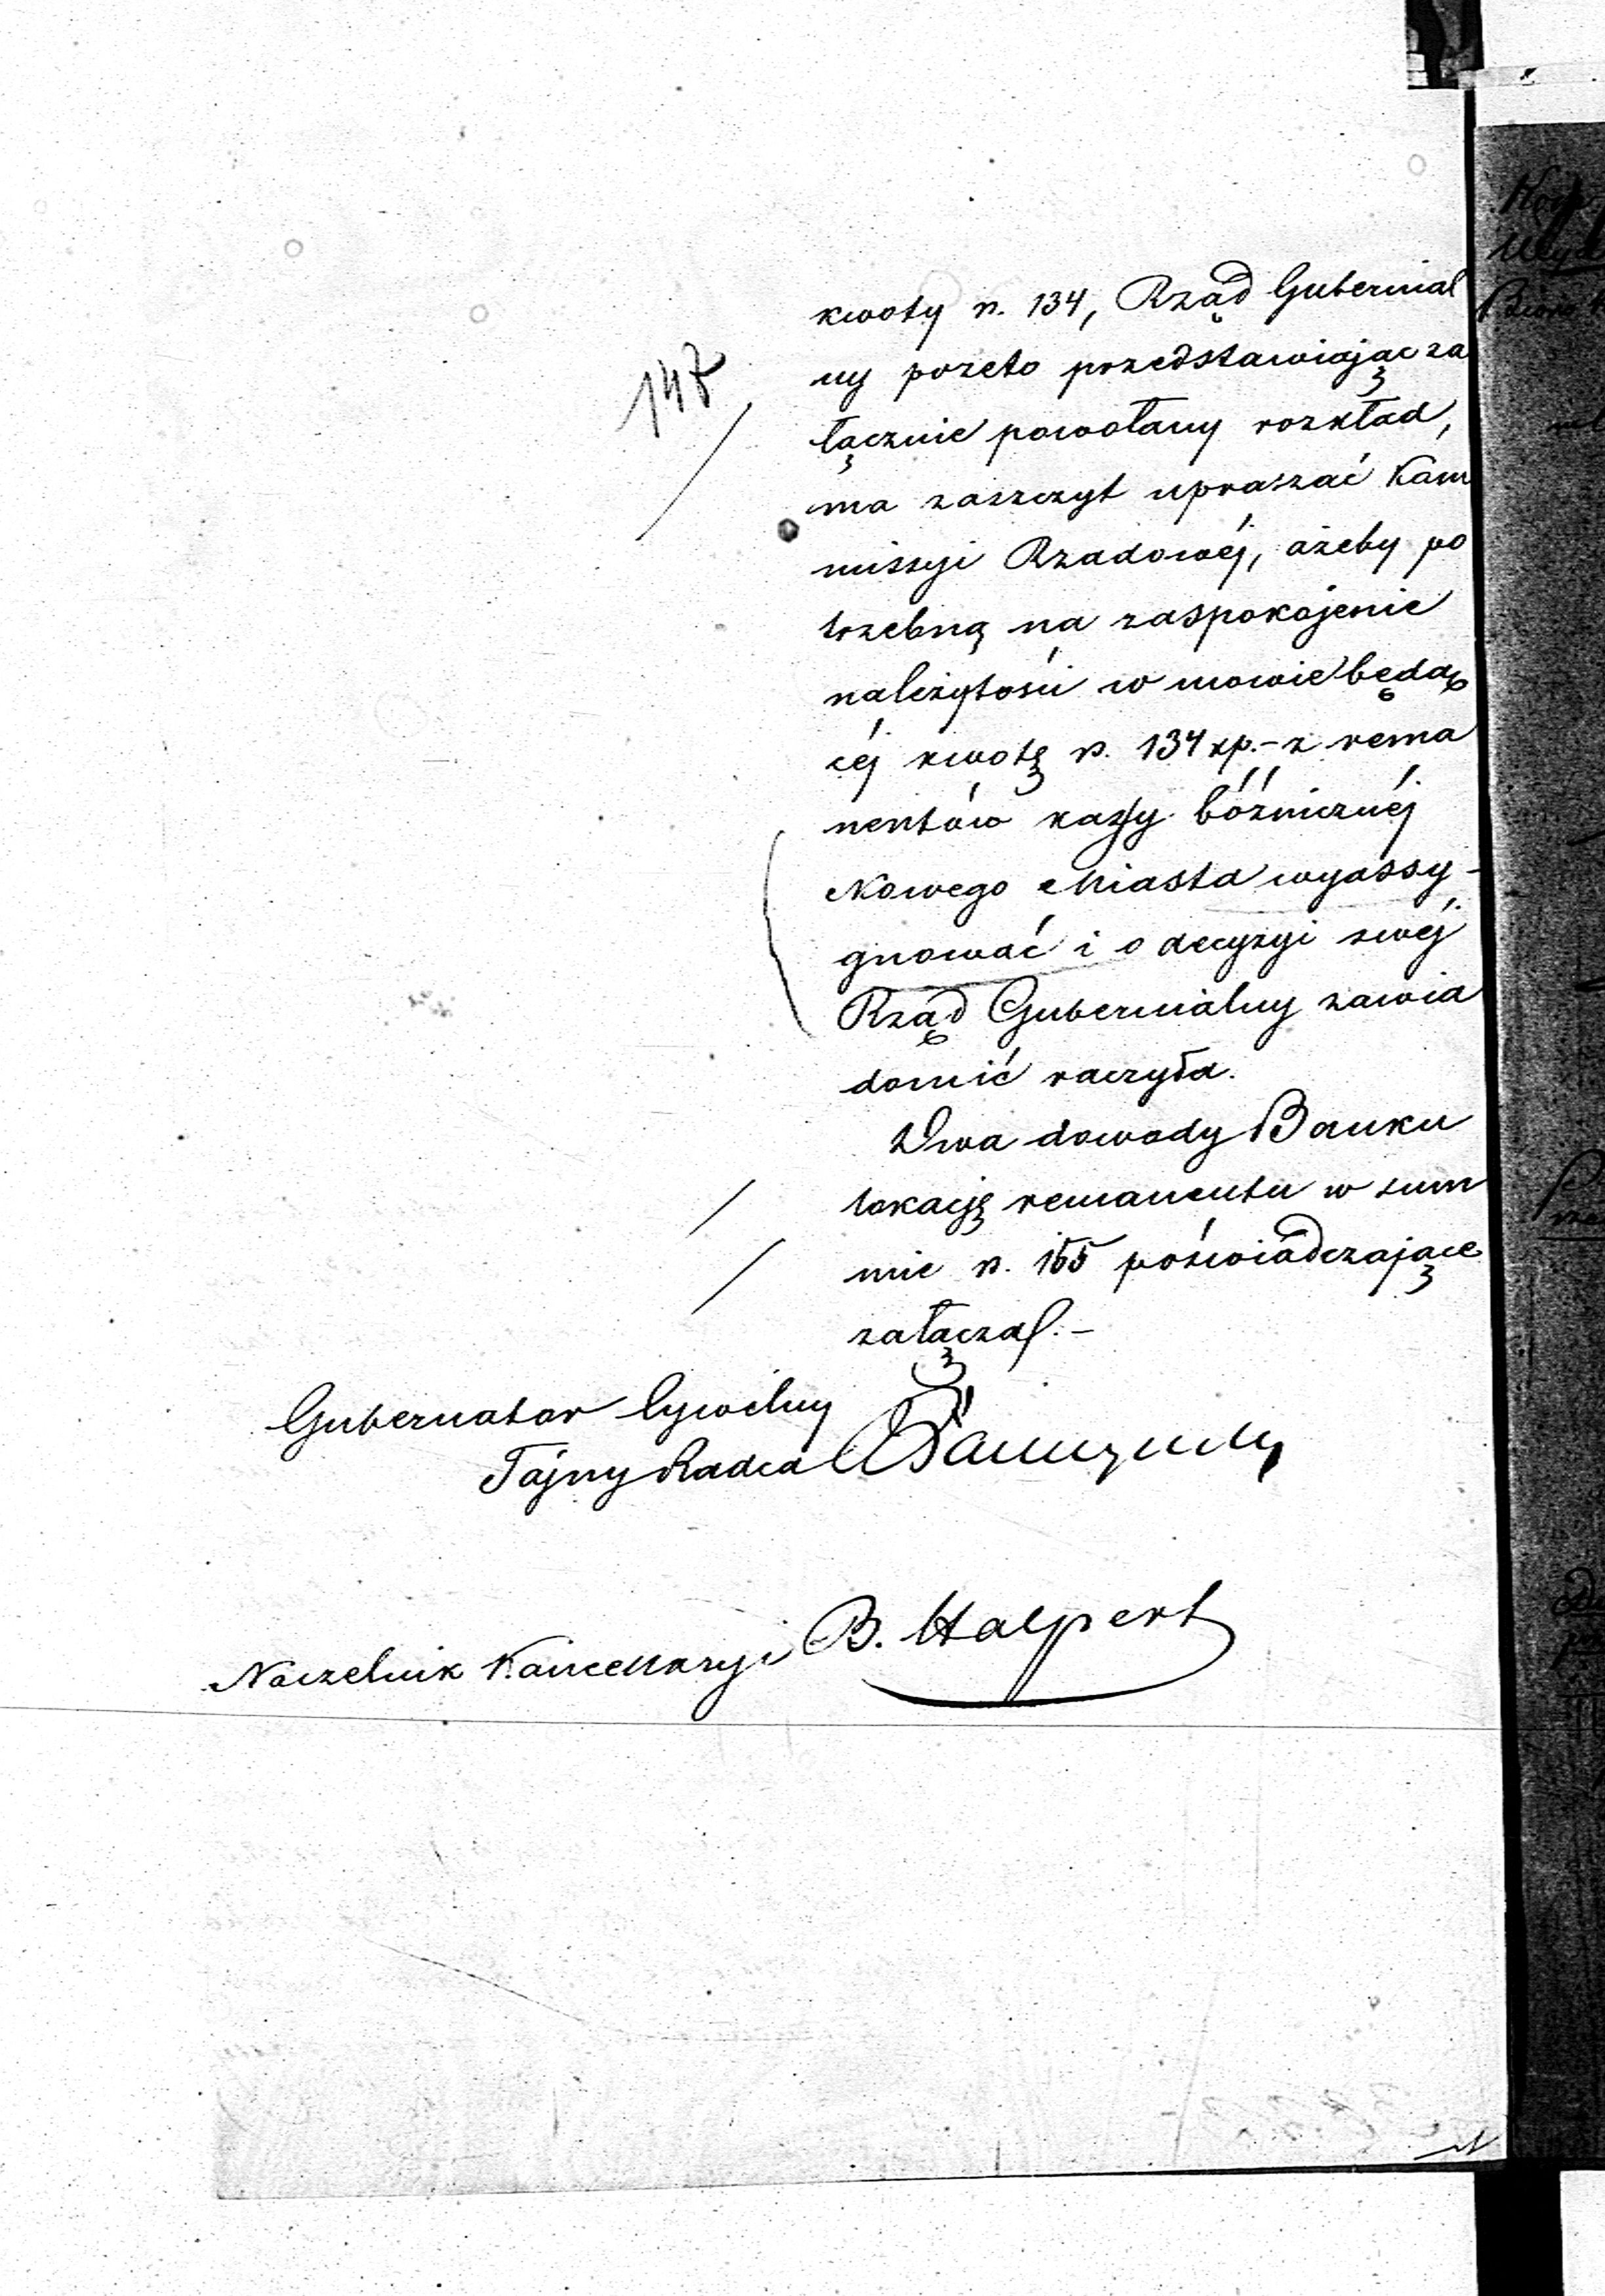 kwoty r. 134, Rząd Gubernial
ny przeto przedstawiając za
147
łącznie powołany rozkład,
ma zaszczyt upraszać Kom
missyi Rządowéj, ażeby po
trzebną na zaspokojenie
należytości w mowie będą
céj kwotę r. 134 kp. - z rema
nentów kassy bóżnicznéj
Nowego Miasta wyassy-
gnować i o decyzyi swéj
Rząd Gubernialny zawia
domić raczyła.
Dwa dowody Banku
lokacyę remanentu w sum
mie r. 155 poświadczające
załącza. -
Gubernator Cywilny
Tajny Radca
Naczelnik Kancellaryi B. Halpert